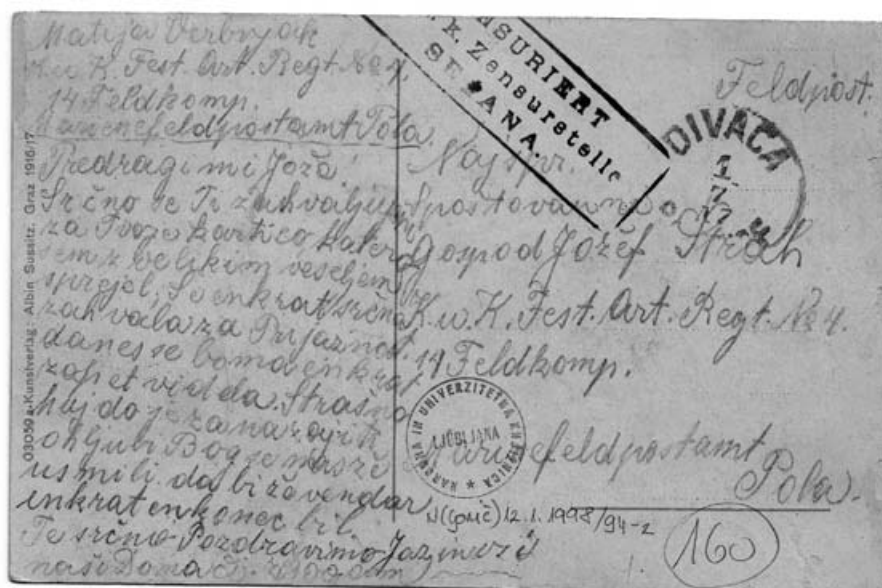 Matija Verbnjak
K. u. K. Fest. Art. Regt. No 4.
14 Feldkomp.
Marenefeldpostamt Pola.
Predragi mi Joža!
Srčno se Ti zahvaljujem
za Tvojo kartico katero
sem z velikim veseljem
sprejel, še enkrat srčna
zahvala za Prijaznost
danes se boma enkrat
zapet vidda. Strašno
huj do je za na
oh ljubi Bog se
usmili da bi že vendar
enkrat en konec bil.
Te srčno Pozdravimo Jaz
naši Doma
03059 a-Kunstverlag: Albin Sussitz, Graz 1916/17
ZENSURIERT
k. Zensurstelle
SEŽANA.
Feldpost.
DIVAČA
1
7
17
Naj spr.
Spostovanni
Gospod Jožef Strah
K. u. K. Fest. Art. Regt. No 4.
14 Feldkomp.
Marinefeldpostamt
Pola.
NARODNA IN UNIVERZITETNA KNJIŽNICA
LJUBLJANA
12. 1. 1998/94-2
160